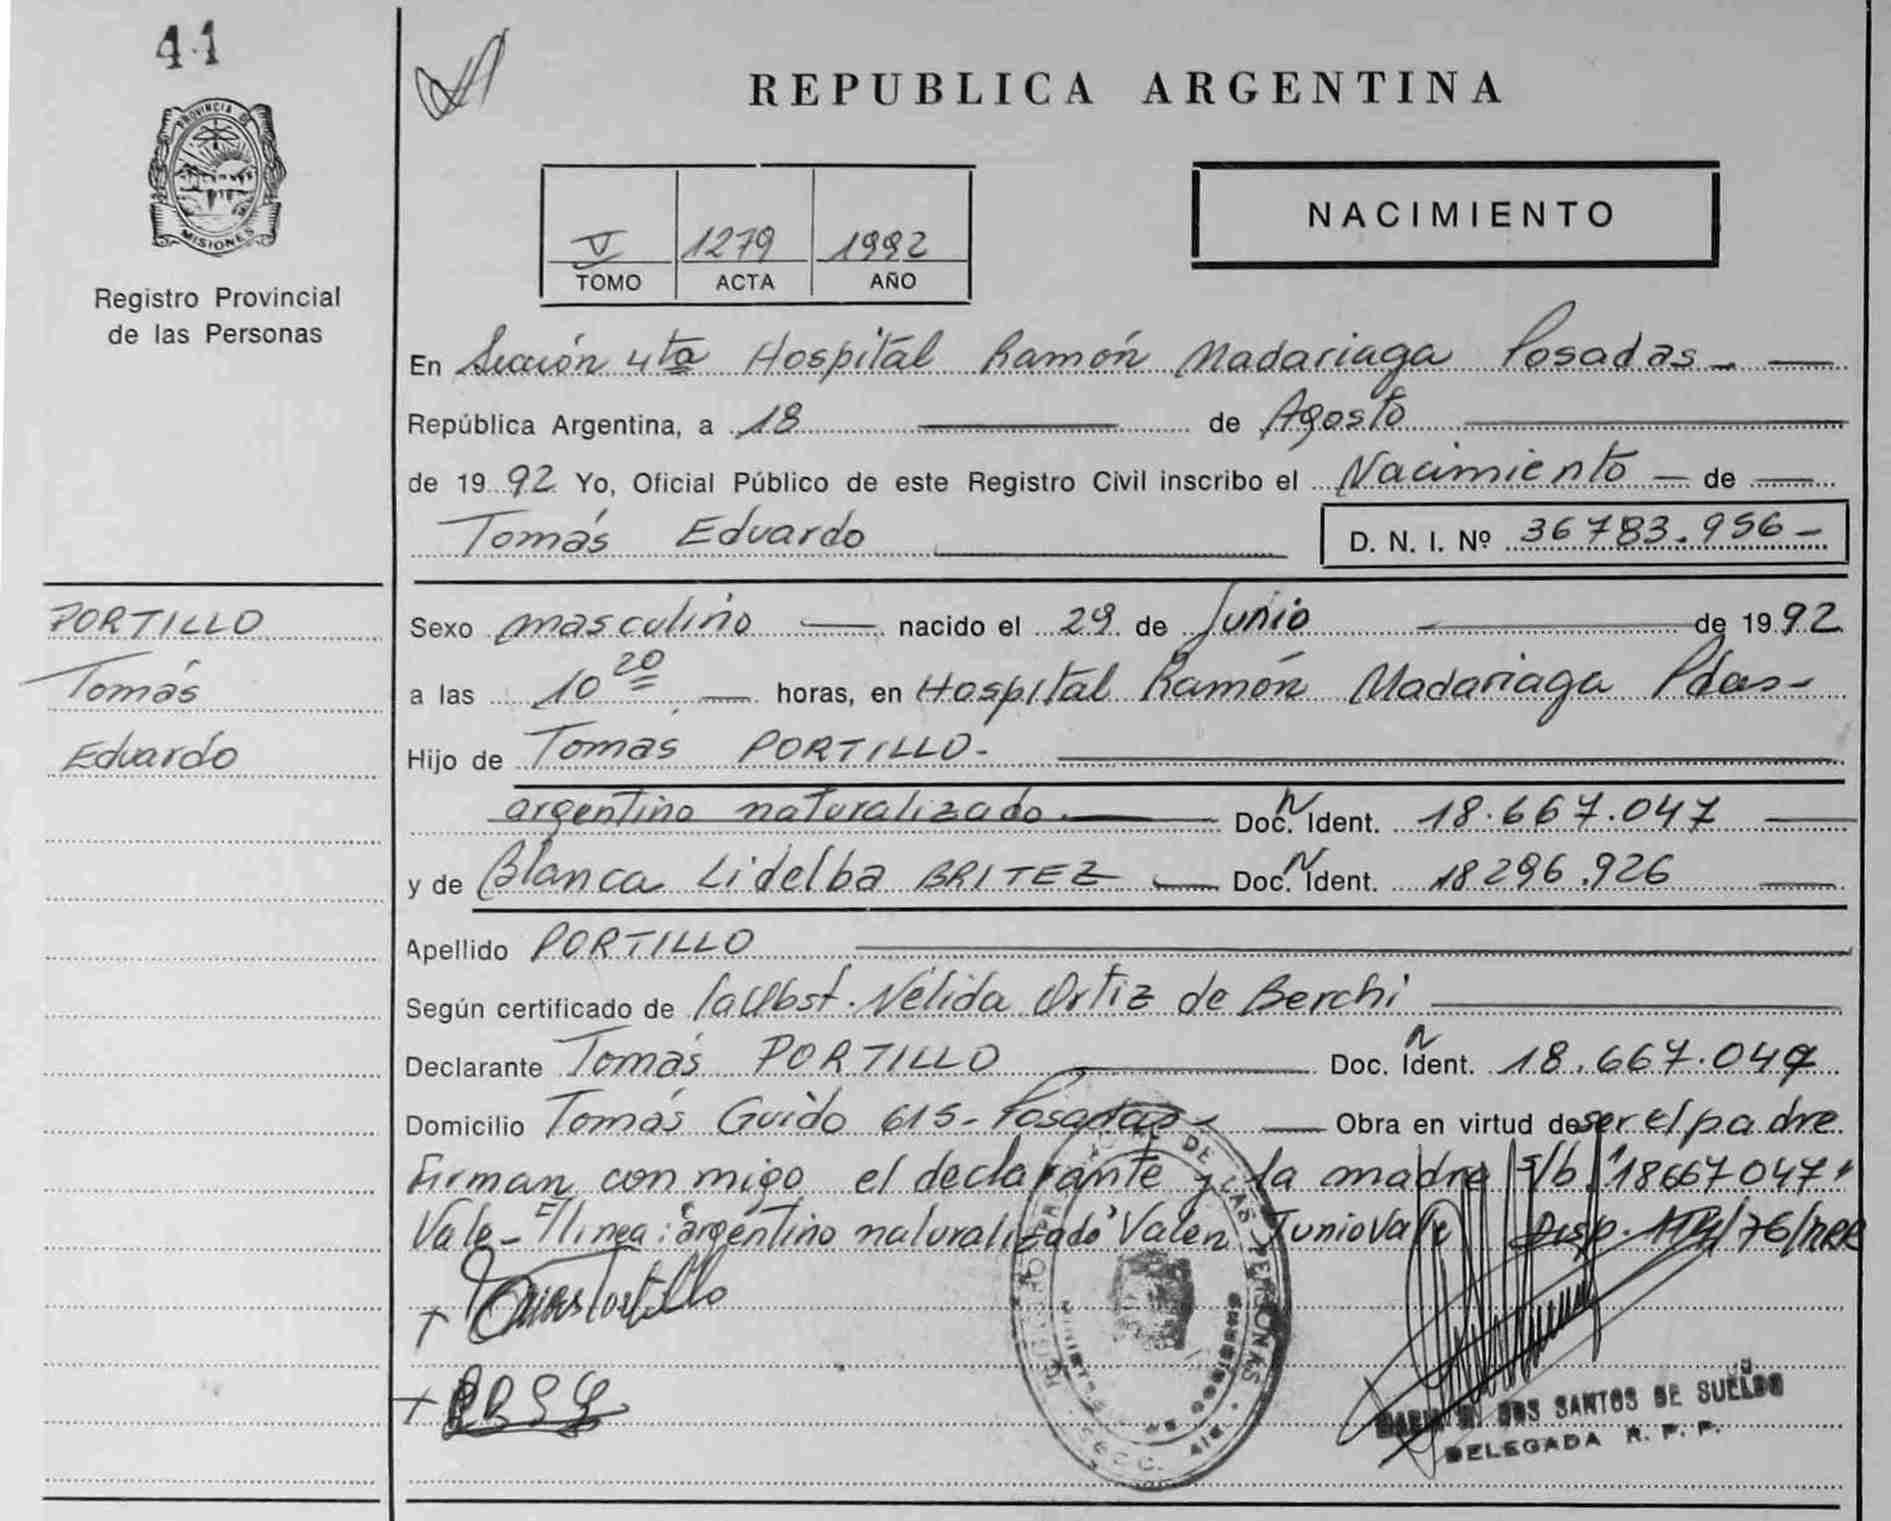 41
REPUBLICA ARGENTINA
PROVINCIA DE
MISIONES
Registro Provincial
de las Personas
V 1279 1992
TOMO ACTA AÑO
NACIMIENTO
En Sección 4ta Hospital Ramón Madariaga Posadas
República Argentina, a 18 de Agosto
de 1992 Yo, Oficial Público de este Registro Civil inscribo el Nacimiento de
Tomás Eduardo D. N. I. Nº 36783.956-
PORTILLO
Tomás
Eduardo
Sexo masculino nacido el 29 de Junio de 1992
a las 10 20 horas, en Hospital Ramón Madariaga Pdas-
Hijo de Tomás PORTILLO-
argentino naturalizado Doc. N Ident. 18.667.047
y de Blanca Lidelba BRITEZ Doc. N Ident. 18296.926
Apellido PORTILLO
Según certificado de la Obst. Nélida Ortiz de Berchi
Declarante Tomás PORTILLO Doc. N Ident. 18.667.047
Domicilio Tomás Guido 615- Posadas Obra en virtud de ser el padre
Firman con migo el declarante y la madre s/b "18667047"
Vale- E/linea: "argentino naturalizado" Valen Junio Vale Disp. /76/
DOS SANTOS DE SUELDO
DELEGADA R. P. P.